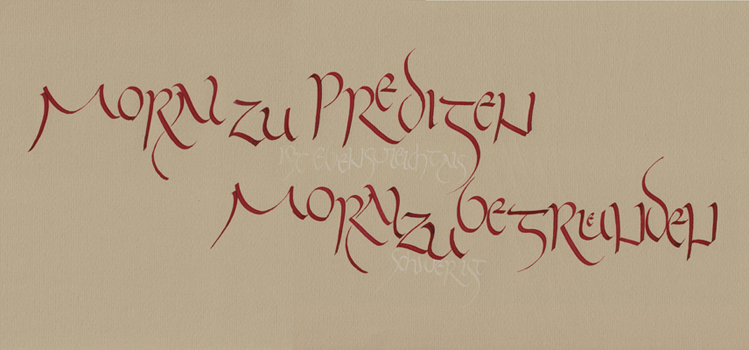 Moral zu predigen
ist ebenso leicht als
Moral zu begruenden
schwer ist